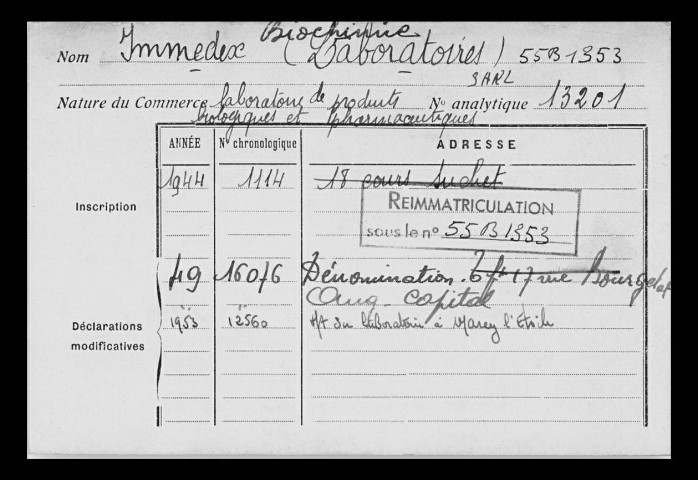 Biochimie
Nom Immedex (Laboratoires) 55B1353
SARL
Nature du Commerce laboratoire de produits N° analytique 13201
biologiques et pharmaceutiques
ANNÉE N° chronologique ADRESSE
Inscription 1944 1114 18 cours Suchet
REIMMATRICULATION
sous le n° 55B1353
49 16076 Dénomination. 17 rue Bourgelat
Aug. Capital
Déclarations modificatives 1953 12560 du laboratoire à Marcy l'Etoile